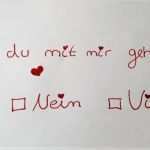 du mit mir geh
Nein Vi